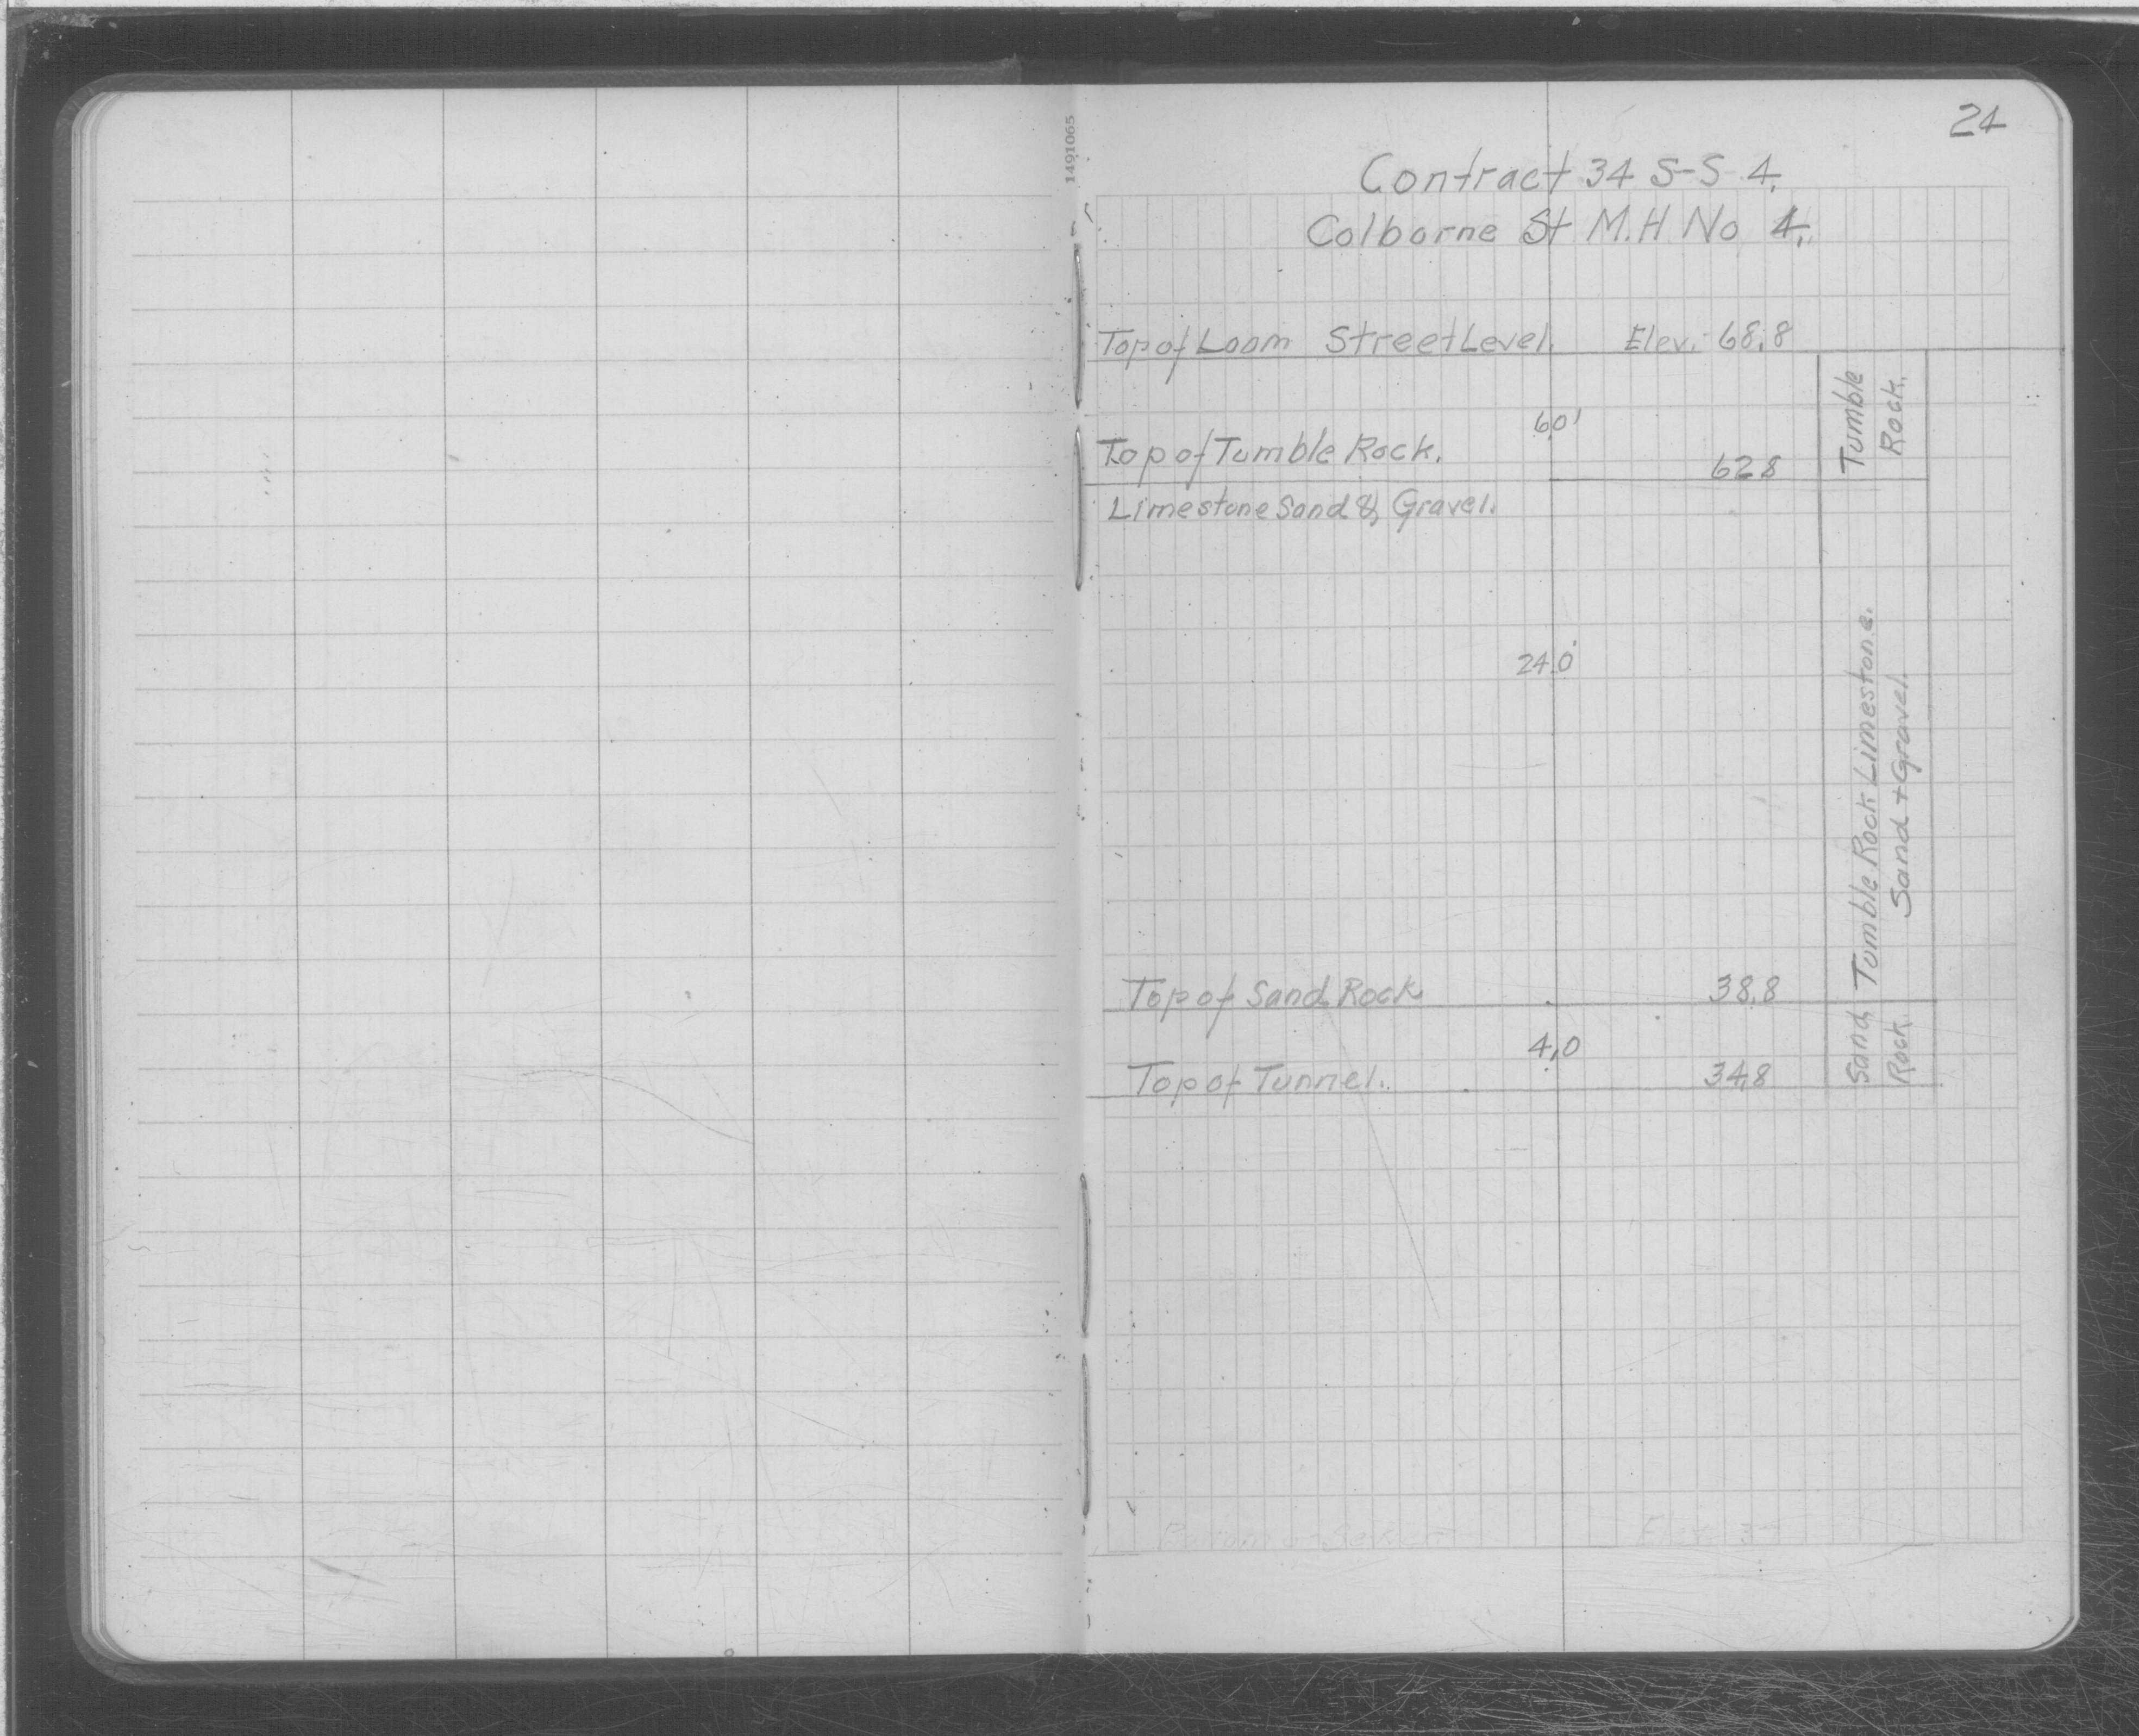 24
1491065
Contract 34 S-S 4.
Colborne St M.H No 4.
Top of Loam Street Level. Elev. 68.8
Tumble
Rock.
6.0'
Top of Tumble Rock. 62.8
Limestone Sand & Gravel.
24.0'
Tumble Rock Limestone.
Sand + Gravel.
Top of Sand Rock 38.8
Sand
Rock.
4.0
Top of Tunnel. 34.8